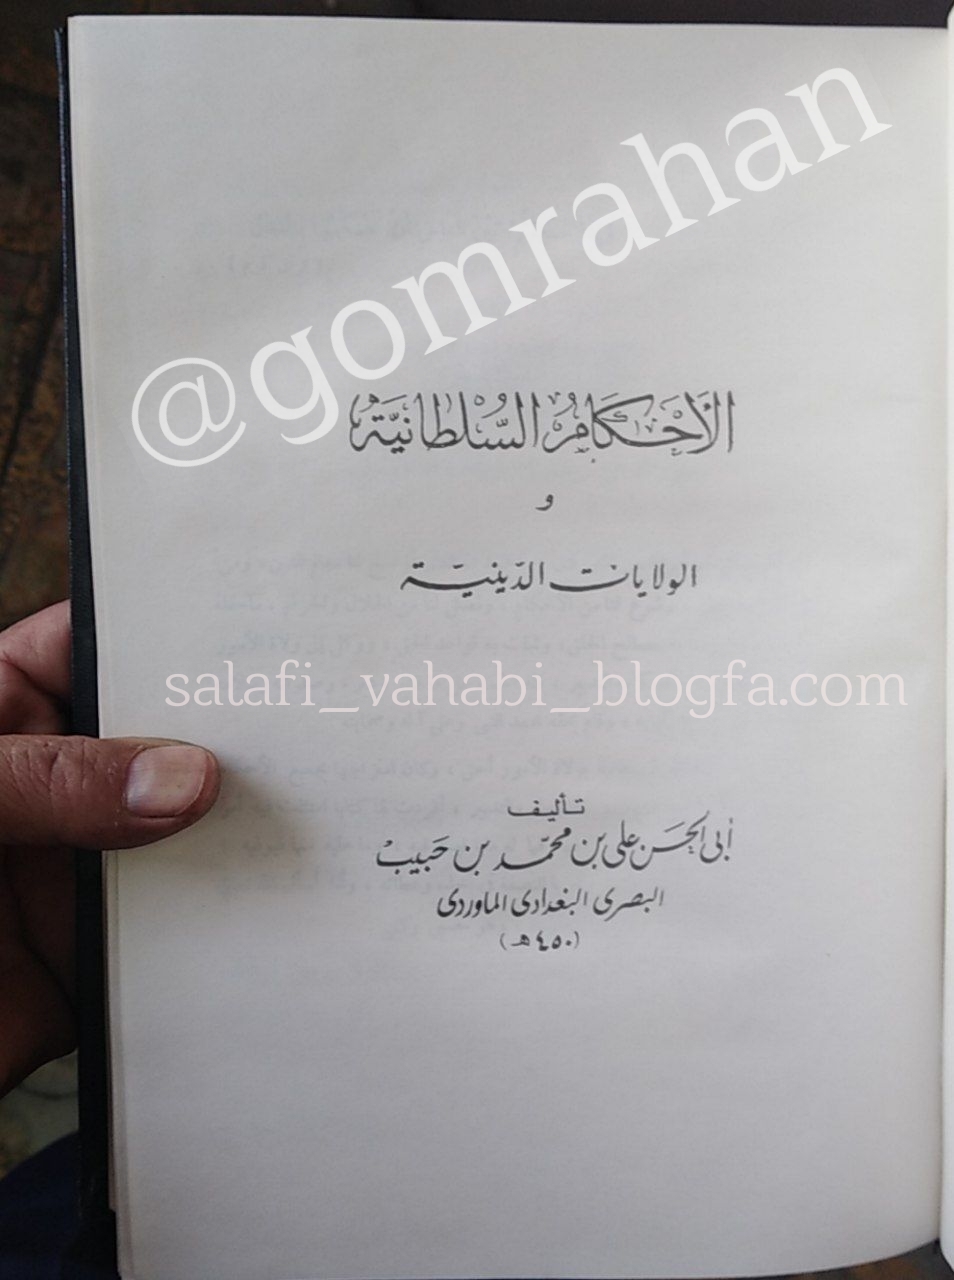 @gomrahan
الأحكام السلطانية
و
الولايات الدينية
salafi_vahabi_blogfa.com
تأليف
أبى الحسن على بن محمد بن حبيب
البصرى البغدادى الماوردى
(٤٥٠ هـ)